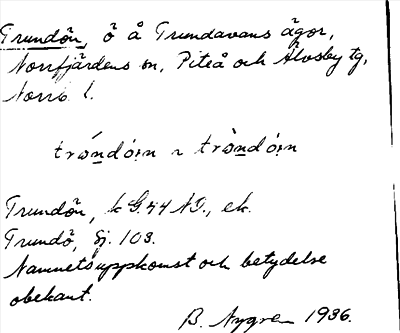 Trundön, ö å Trundavans ägor,
Norrfjärdens sn, Piteå och Älvsby tg,
Norrb. l.
Trundön, k G.44 NO., ek.
Trundö, Sj. 103.
Namnets uppkomst och betydelse
obekant.
B. Nygren 1936.